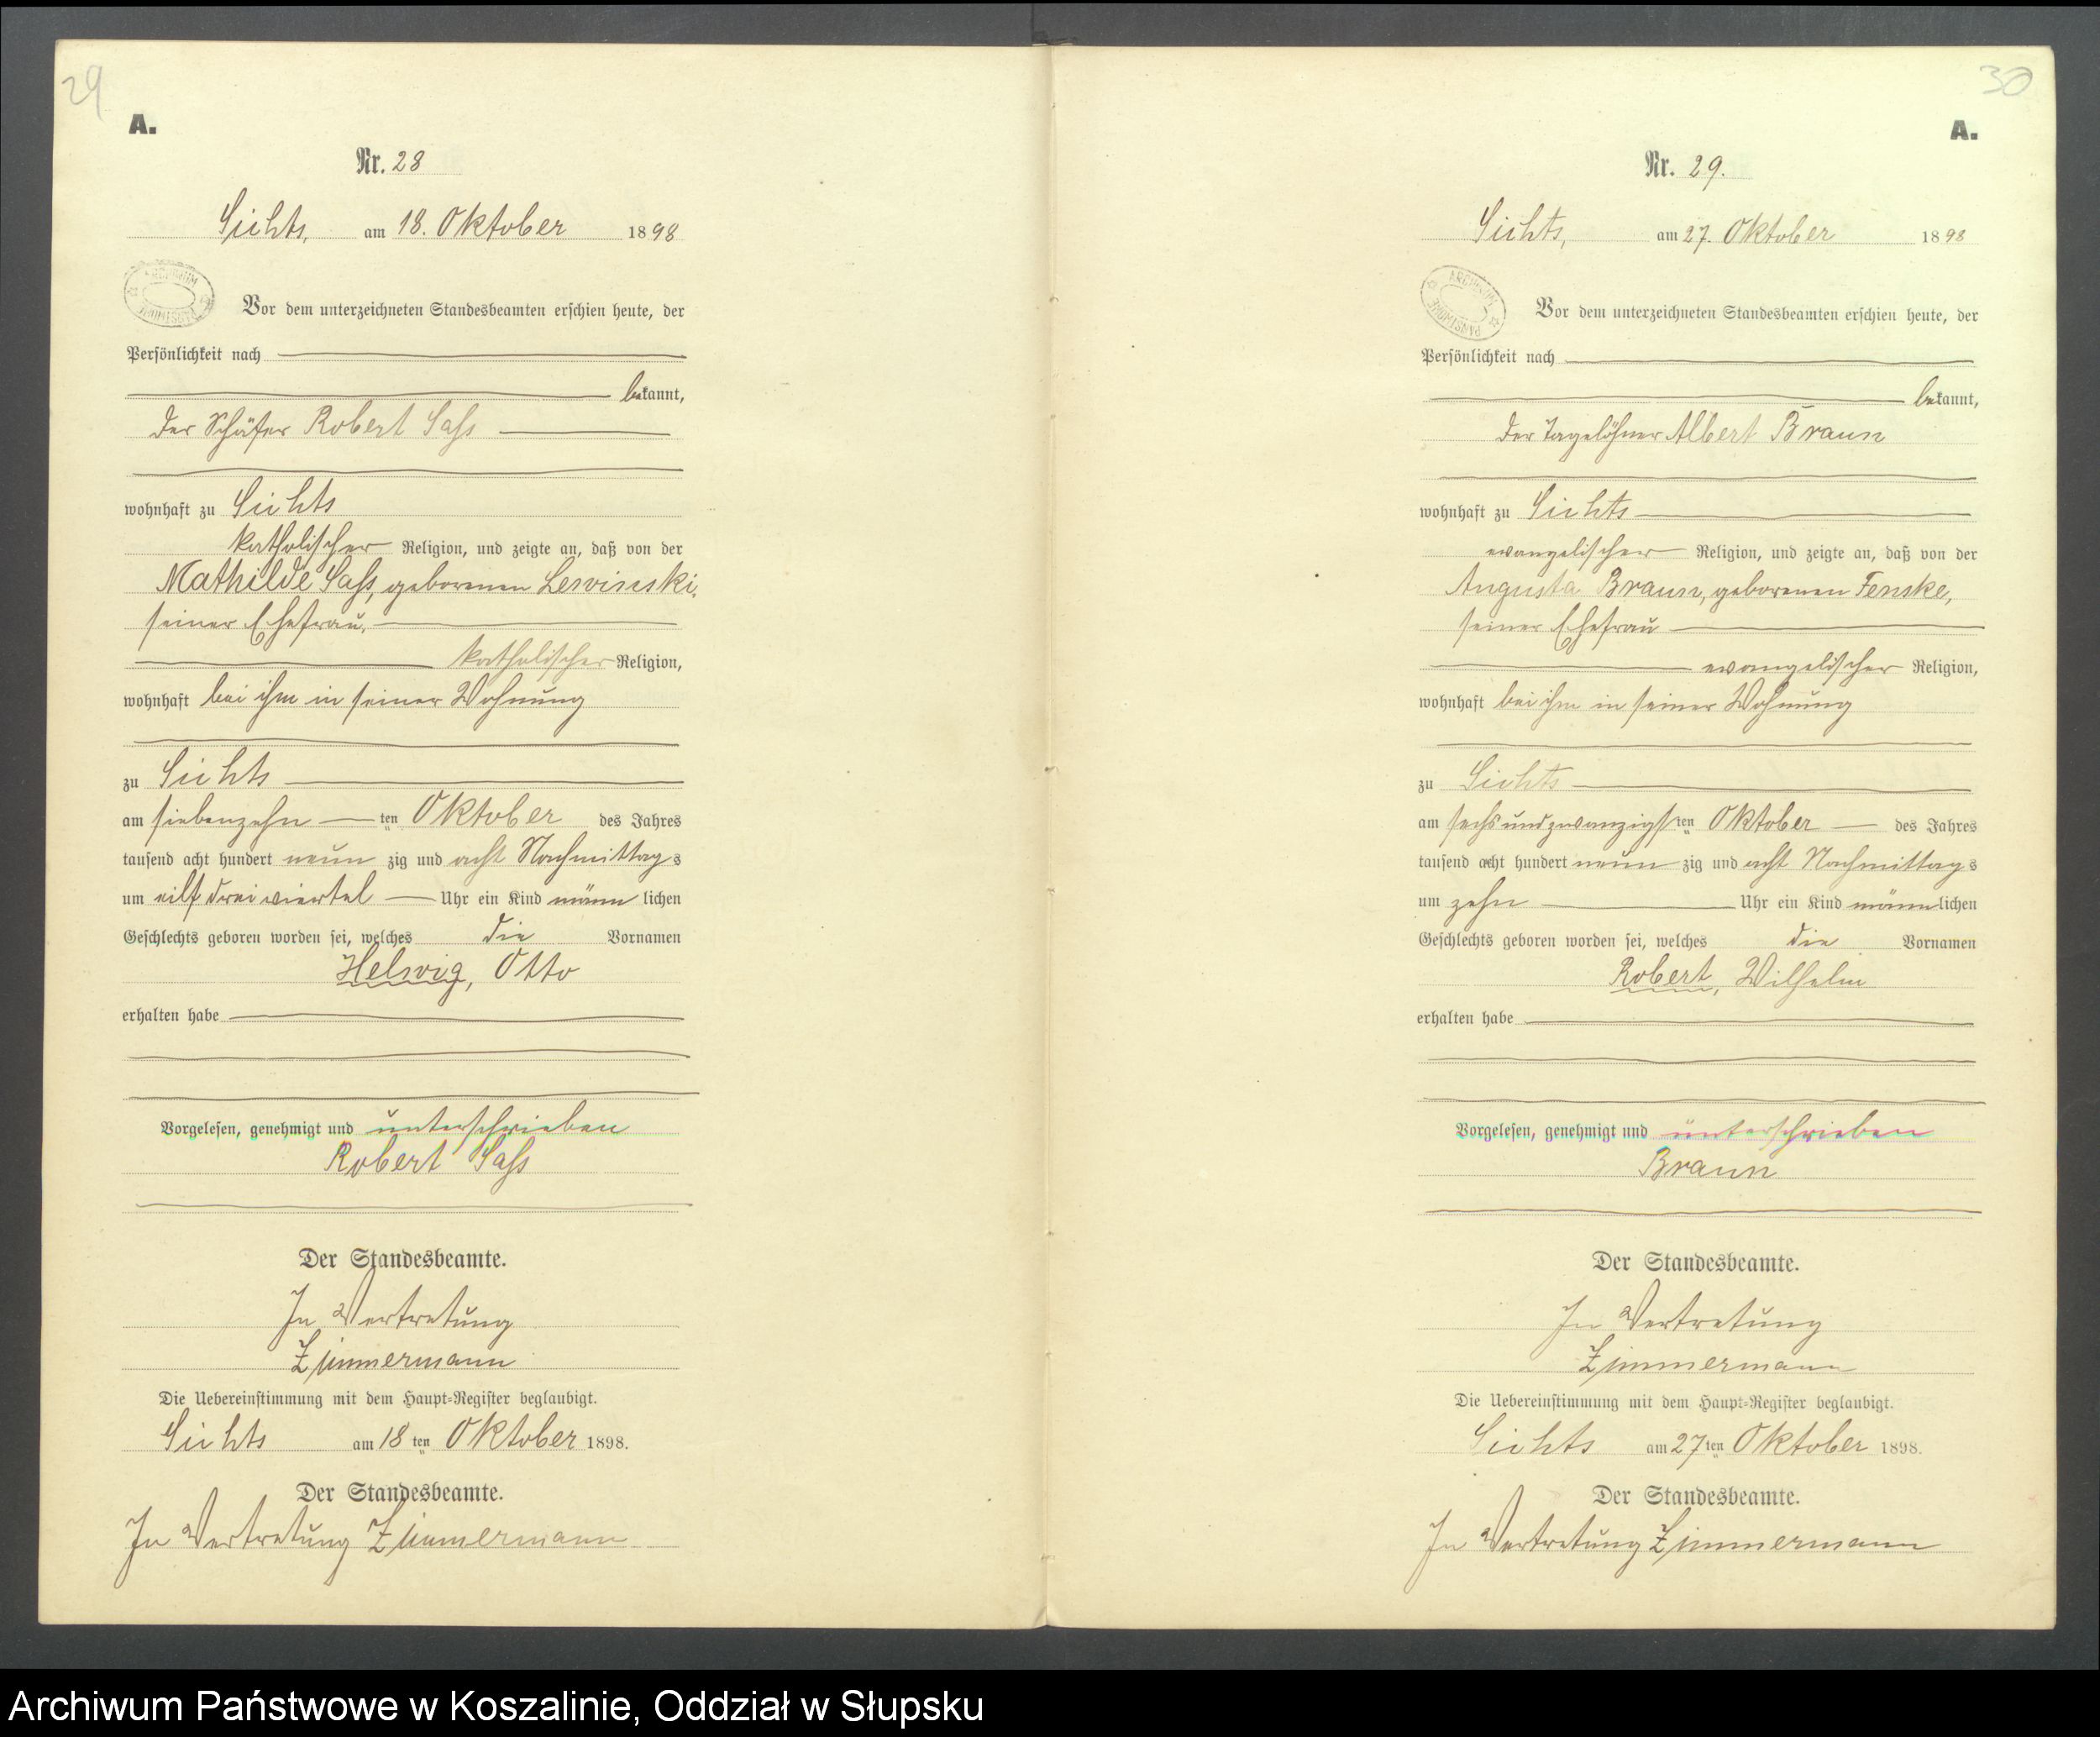 29
A.
Nr. 28
Sichts, am 18. Oktober 1898
ARCHIWUM
Vor dem unterzeichneten Standesbeamten erschien heute, der
Persönlichkeit nach
bekannt,
der Schäfer Robert Saß
wohnhaft zu Sichts
katholischer Religion, und zeigte an, daß von der
Mathilde Saß, geborenen Lewinski,
seiner Ehefrau,
katholischer Religion,
wohnhaft bei ihm in seiner Wohnung
zu Sichts
am siebenzehn ten Oktober des Jahres
tausend acht hundert neun zig und acht Nachmittags
um eilf dreiviertel Uhr ein Kind männlichen
Geschlechts geboren worden sei, welches die Vornamen
Helwig, Otto
erhalten habe
Vorgelesen, genehmigt und unterschrieben
Robert Saß
Der Standesbeamte.
In Vertretung
Zimmermann
Die Uebereinstimmung mit dem Haupt-Register beglaubigt.
Sichts am 18ten Oktober 1898.
Der Standesbeamte.
In Vertretung Zimmermann
30
A.
Nr. 29.
Sichts, am 27. Oktober 1898
ARCHIWUM PAŃSTWOWE
Vor dem unterzeichneten Standesbeamten erschien heute, der
Persönlichkeit nach
bekannt,
der Tagelöhner Albert Braun
wohnhaft zu Sichts
evangelischer Religion, und zeigte an, daß von der
Augusta Braun, geborenen Fenske,
seiner Ehefrau
evangelischer Religion,
wohnhaft bei ihm in seiner Wohnung
zu Sichts
am sechsundzwanzigsten Oktober des Jahres
tausend acht hundert neun zig und acht Nachmittags
um zehn Uhr ein Kind männlichen
Geschlechts geboren worden sei, welches die Vornamen
Robert, Wilhelm
erhalten habe
Vorgelesen, genehmigt und unterschrieben
Braun
Der Standesbeamte.
In Vertretung
Zimmermann
Die Uebereinstimmung mit dem Haupt-Register beglaubigt.
Sichts am 27ten Oktober 1898.
Der Standesbeamte.
In Vertretung Zimmermann
Archiwum Państwowe w Koszalinie, Oddział w Słupsku